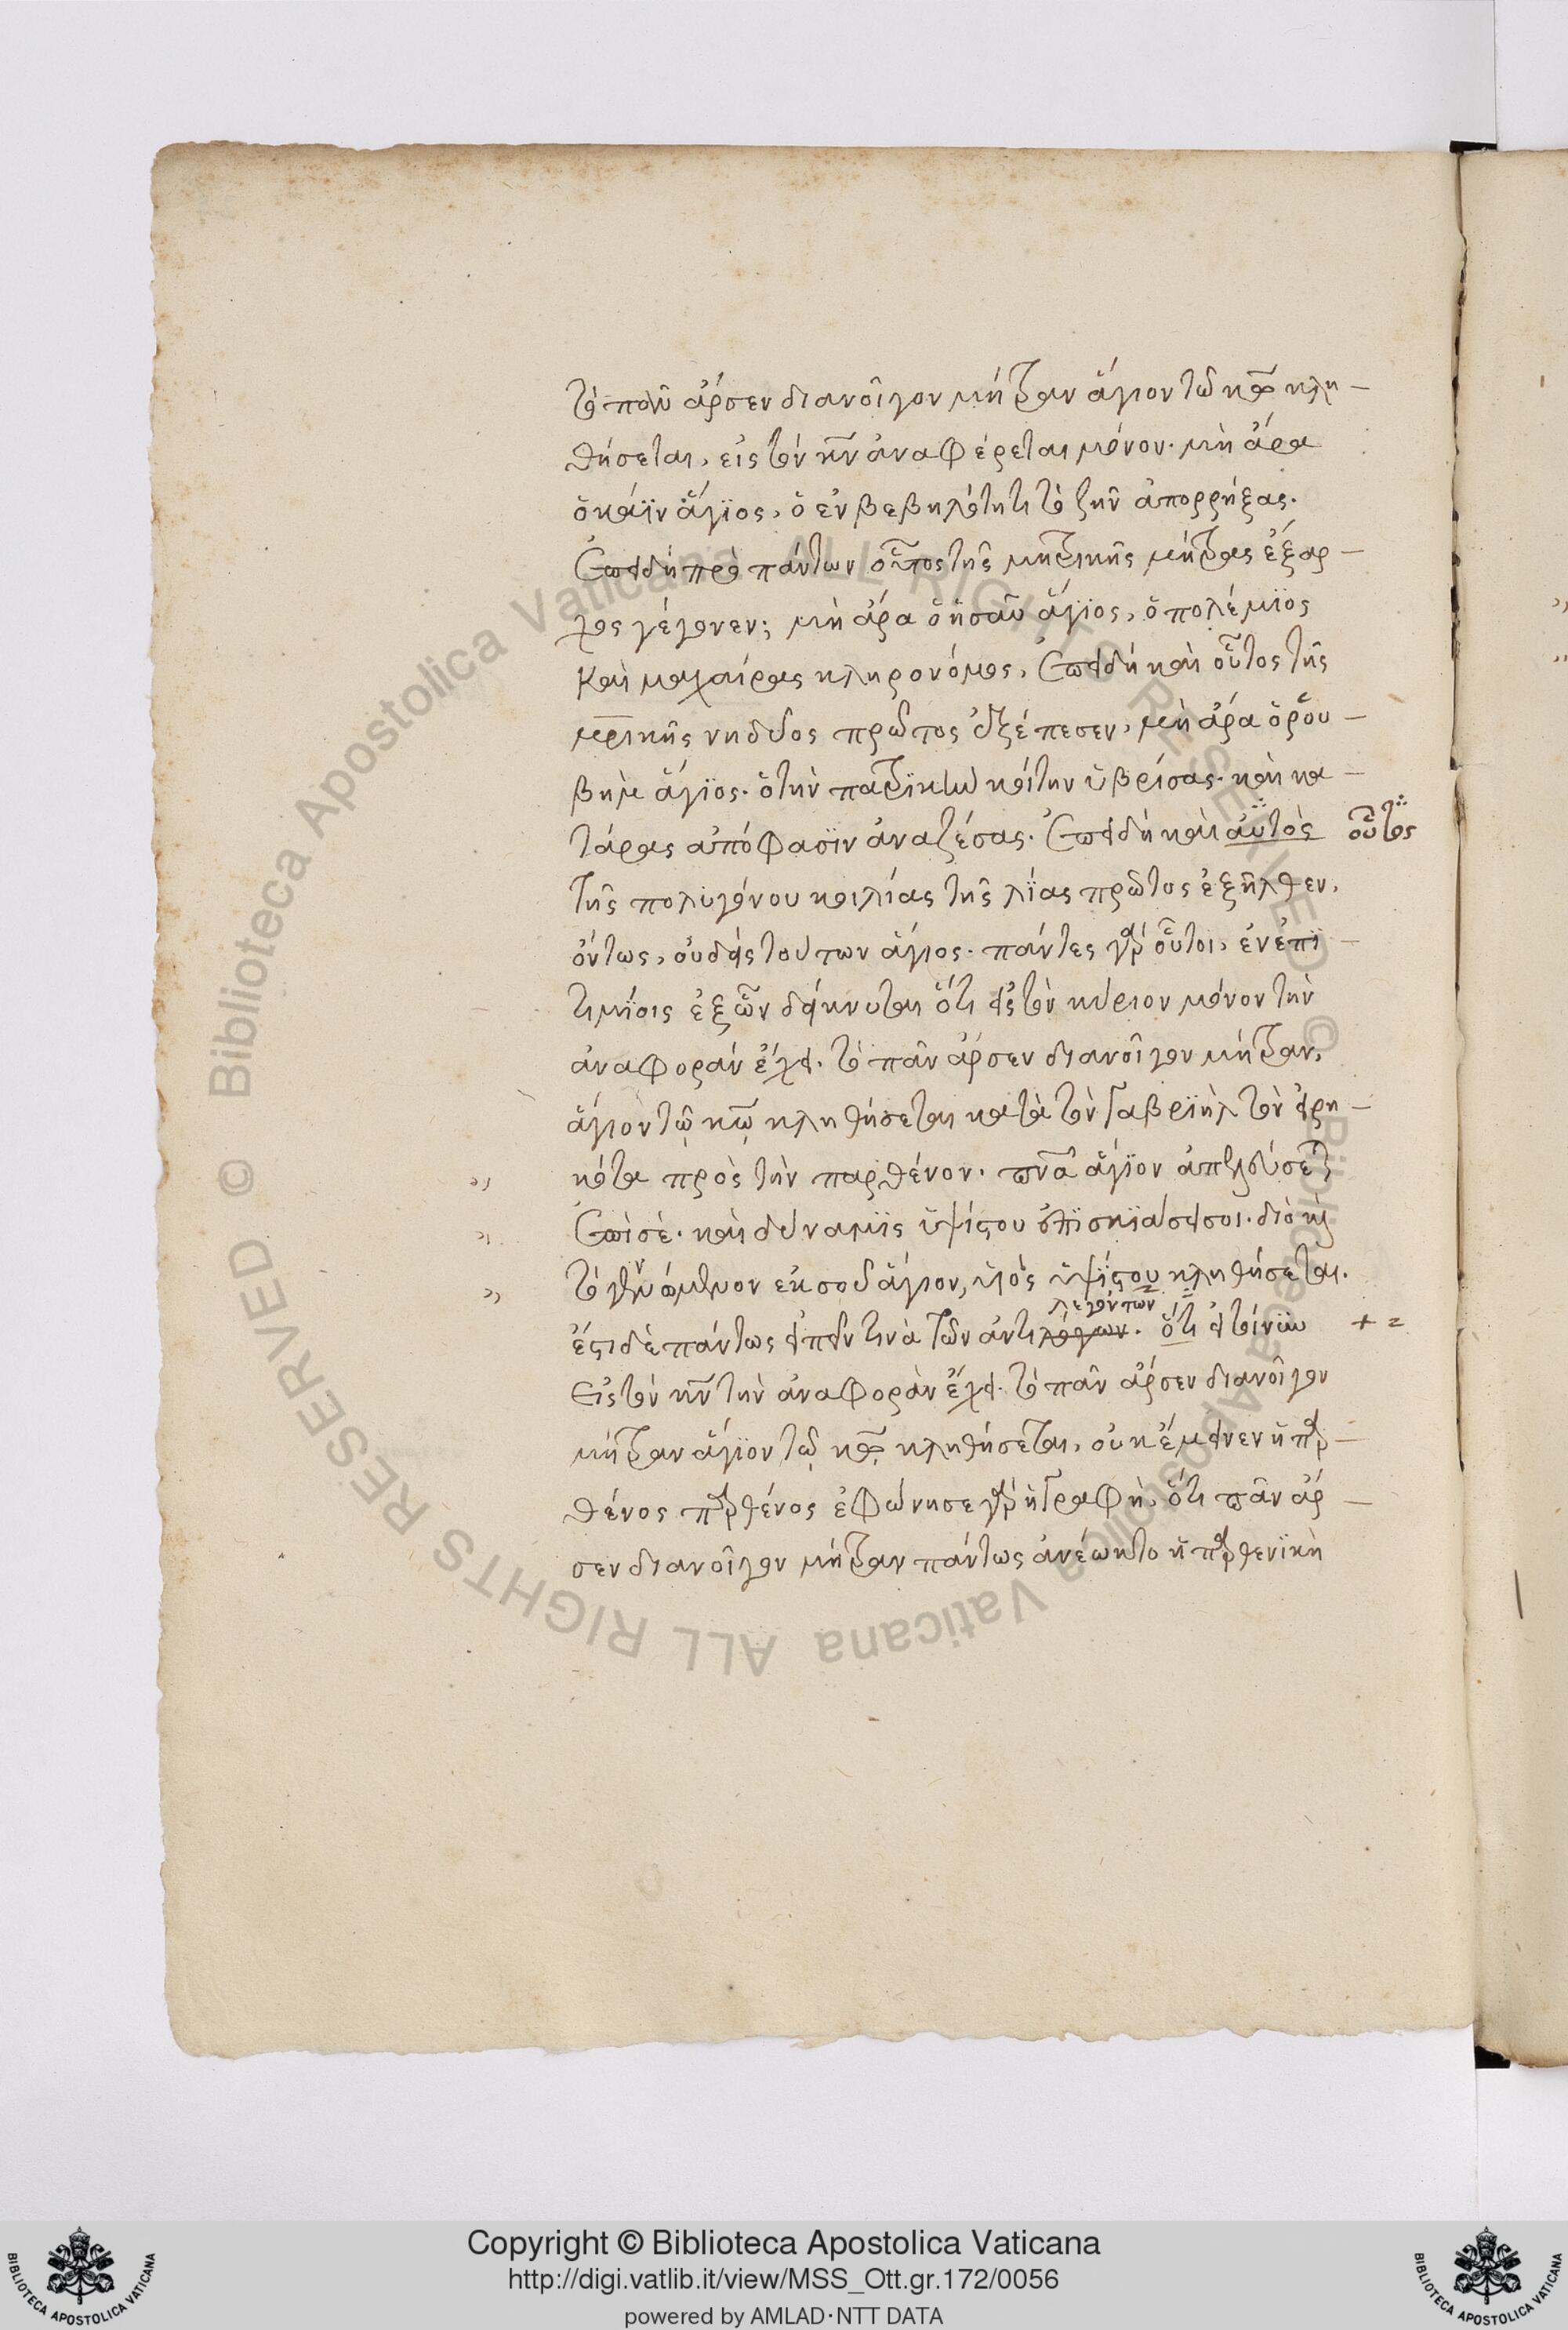 τὸ πᾶν ἄρσεν διανοῖγον μήτραν ἅγιον τῶ κῶ κλη-
θήσεται, εἰς τὸν κν ἀναφέρεται μόνον. μὴ ἄρα
ὁ κάϊν ἅγϊος, ὁ ἐν βεβηλότητι τὸ ζῆν ἀπορρήξας.
ἐπειδὴ πρὸ πάντων οὗτος τῆς μητρικῆς μήτρας ἔξαρ-
χος γέγονεν; μὴ ἄρα ὁ ἠσαῦ ἅγϊος, ὁ πολέμϊος
καὶ μαχαίρας κληρονόμος, ἐπειδὴ καὶ οὗτος τῆς
μρικῆς νηδύος πρῶτος ἐξέπεσεν, μὴ ἄρα ὁ ρου-
βὴμ ἅγϊος. ὁ τὴν πατρϊκὴν κοίτην ὑβρίσας. καὶ κα-
τάρας ἀπόφασϊν ἀναζέσας. ἐπειδὴ καὶ αὐτὸς οὗτος
τῆς πολυγόνου κοιλίας τῆς λΐας πρῶτος ἐξῆλθεν,
ὄντως, οὐδεὶς τούτων ἅγιος. πάντες γὰρ οὗτοι, ἐν ἐπϊ-
τιμΐοις ἐξ ὧν δείκνυται ὅτι εἰς τὸν κύριον μόνον τὴν
ἀναφορὰν ἔχει. τὸ πᾶν ἄρσεν διανοῖγον μήτραν,
ἅγιον τῷ κῷ κληθήσεται κατὰ τὸν Γαβρϊὴλ τὸν εἰρη-
κότα πρὸς τὴν παρθένον. πνα ἅγϊον ἐπελεύσεται
ἐπὶ σὲ. καὶ δύναμϊς ὑψίστου ἐπϊσκϊάσει σοι. διὸ καὶ
τὸ γεννώμενον ἐκ σοῦ ἅγιον, υἱὸς ὑψΐστου κληθήσεται.
λεγόντων
ἔστι δὲ πάντως εἰπεῖν τινὰ τῶν ἀντιλόγων. ὅτι εἰ + =
Εἰς τὸν κν τὴν ἀναφορὰν ἔχει. τὸ πᾶν ἄρσεν διανοῖγον
μήτραν ἅγϊον τῷ κῷ κληθήσεται, οὐκ ἔμεινεν ἡ παρ-
θένος παρθένος ἐφώνησε γὰρ ἡ Γραφὴ, ὅτι πᾶν ἄρ-
σεν διανοῖγον μήτραν πάντως ἀνέωκτο ἡ παρθενϊκὴ
Copyright © Biblioteca Apostolica Vaticana
http://digi.vatlib.it/view/MSS_Ott.gr.172/0056
powered by AMLAD·NTT DATA